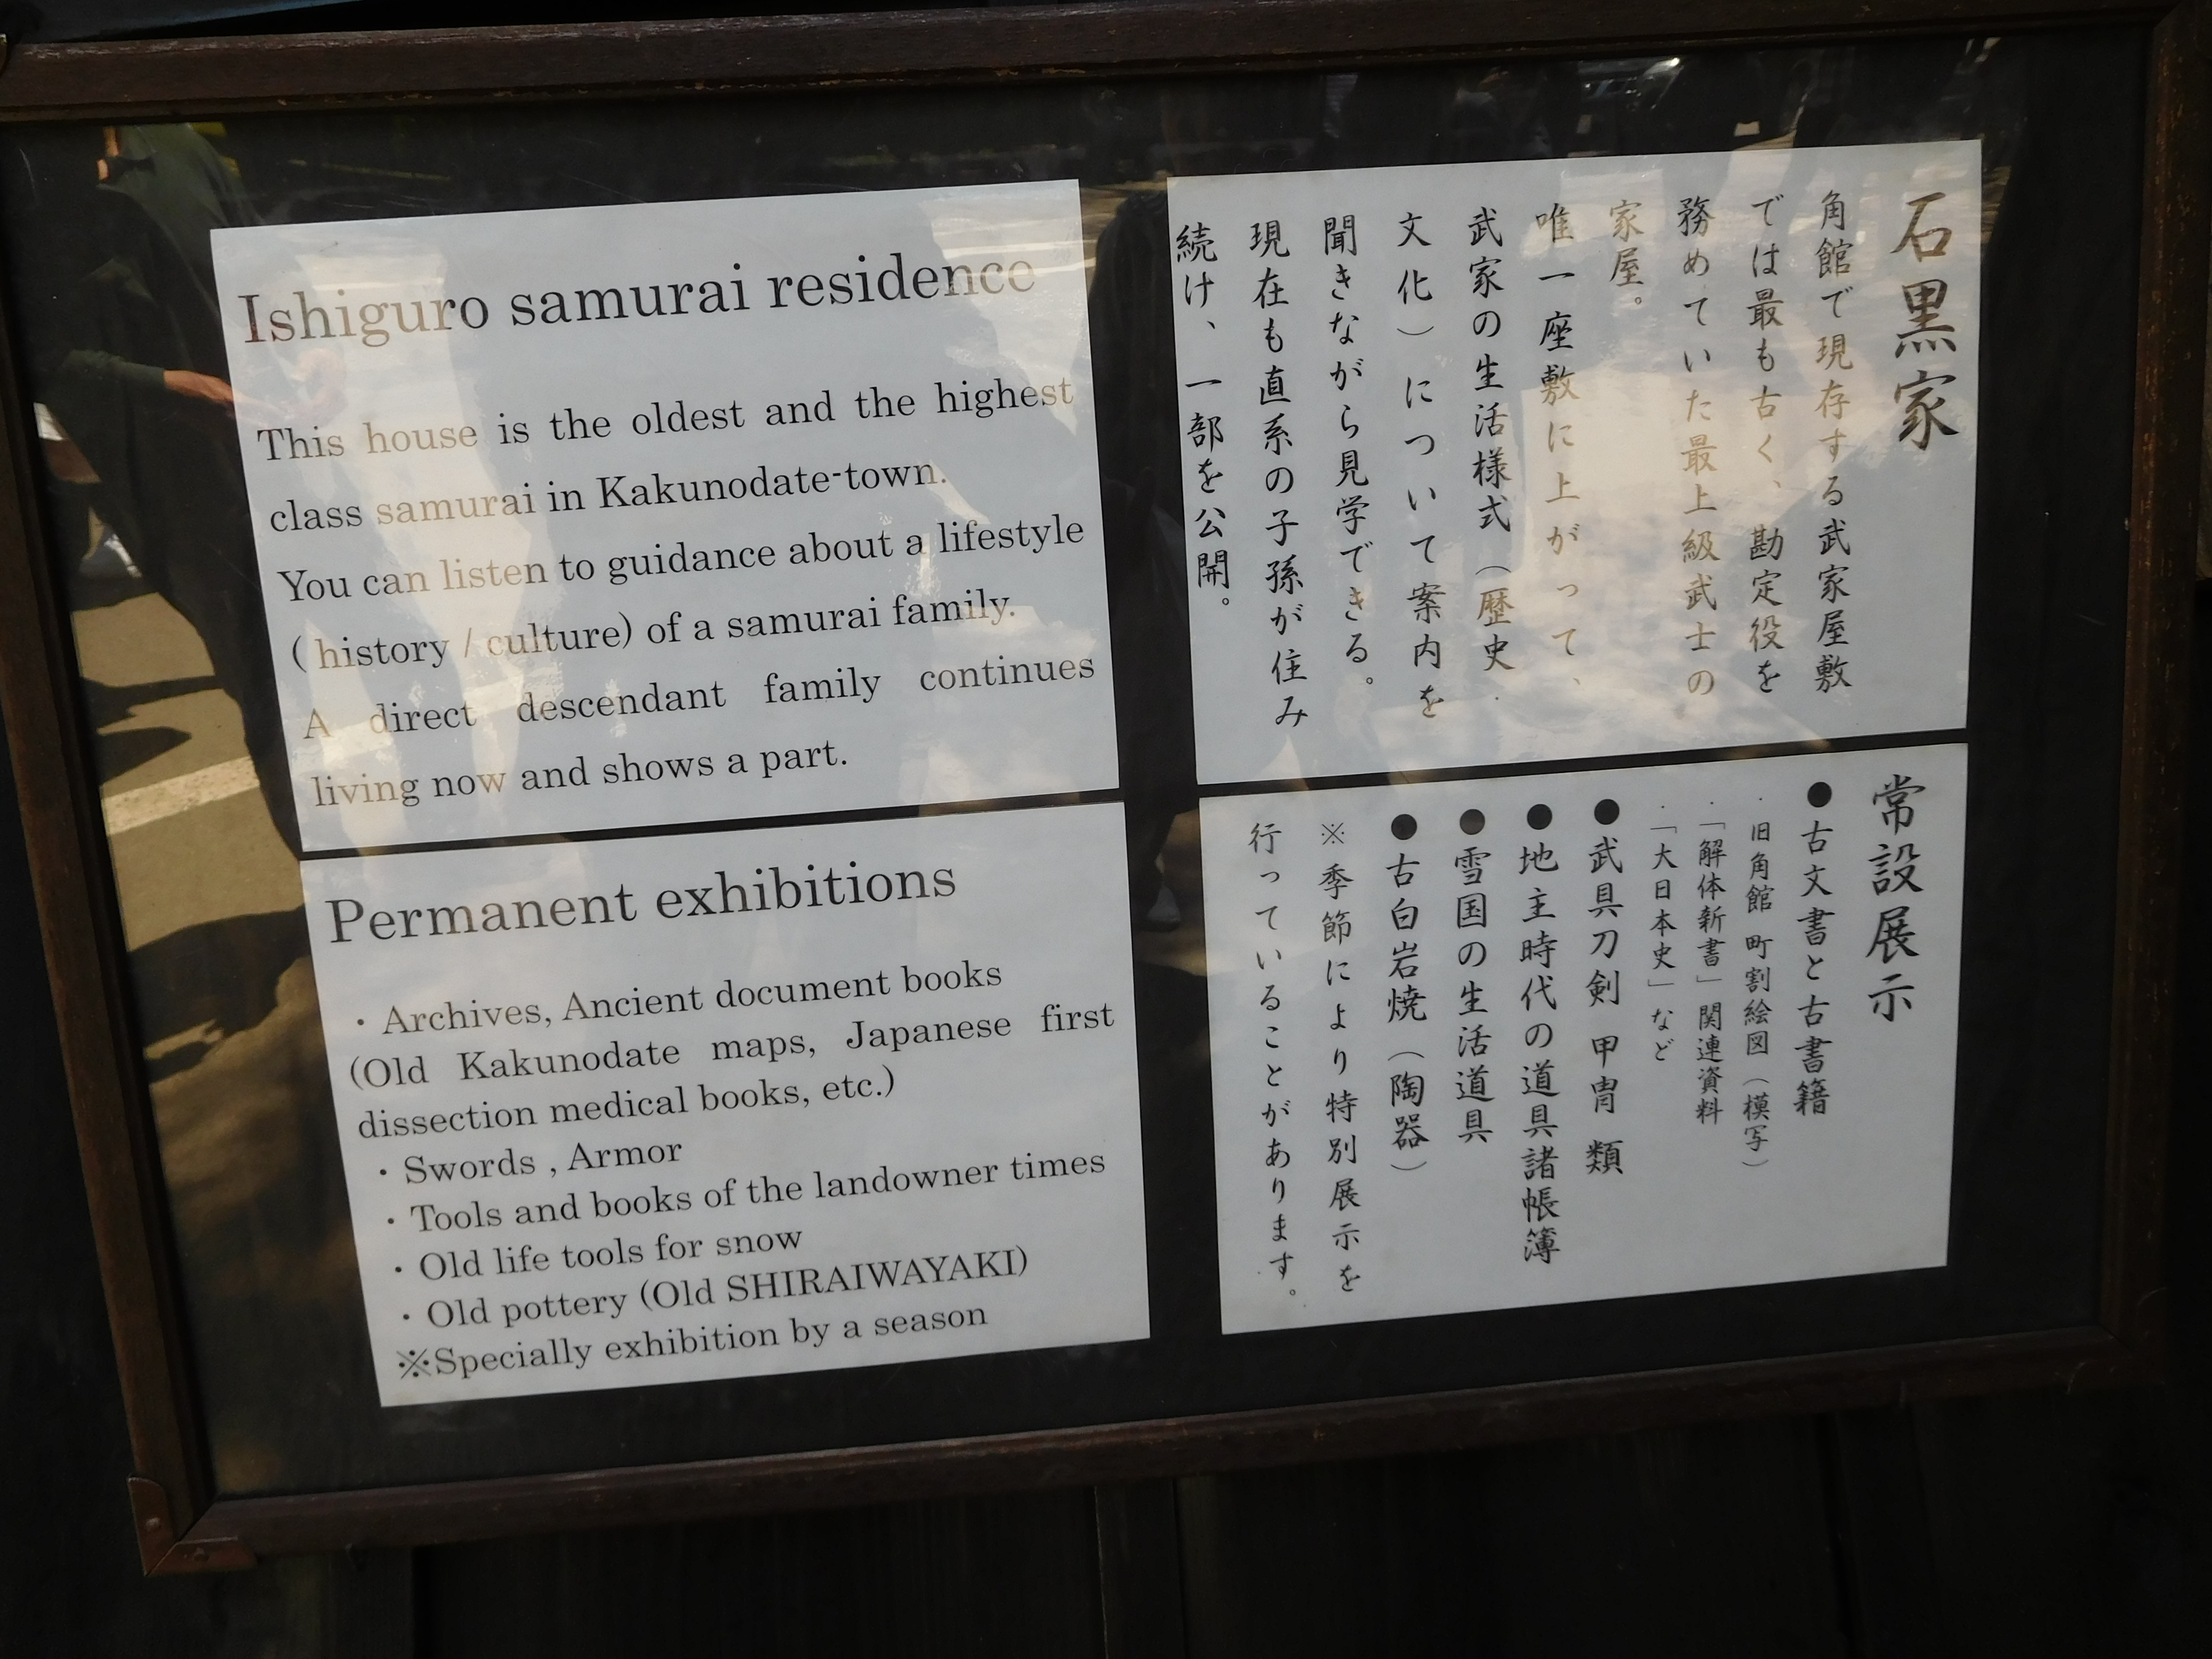 Ishiguro samurai residence
This house is the oldest and the highest
class samurai in Kakunodate-town.
You can listen to guidance about a lifestyle
( history / culture) of a samurai family.
A direct descendant family continues
living now and shows a part.
Permanent exhibitions
・Archives, Ancient document books
(Old Kakunodate maps, Japanese first
dissection medical books, etc.)
・Swords , Armor
・Tools and books of the landowner times
・Old life tools for snow
・Old pottery (Old SHIRAIWAYAKI)
※Specially exhibition by a season
石黒家
角館で現存する武家屋敷
では最も古く、勘定役を
務めていた最上級武士の
家屋。
唯一座敷に上がって、
武家の生活様式（歴史・
文化）について案内を
聞きながら見学できる。
現在も直系の子孫が住み
続け、一部を公開。
常設展示
●古文書と古書籍
・旧角館 町割絵図（模写）
・「解体新書」関連資料
・「大日本史」など
●武具刀剣 甲冑 類
●地主時代の道具諸帳簿
●雪国の生活道具
●古白岩焼（陶器）
※季節により特別展示を
行っていることがあります。